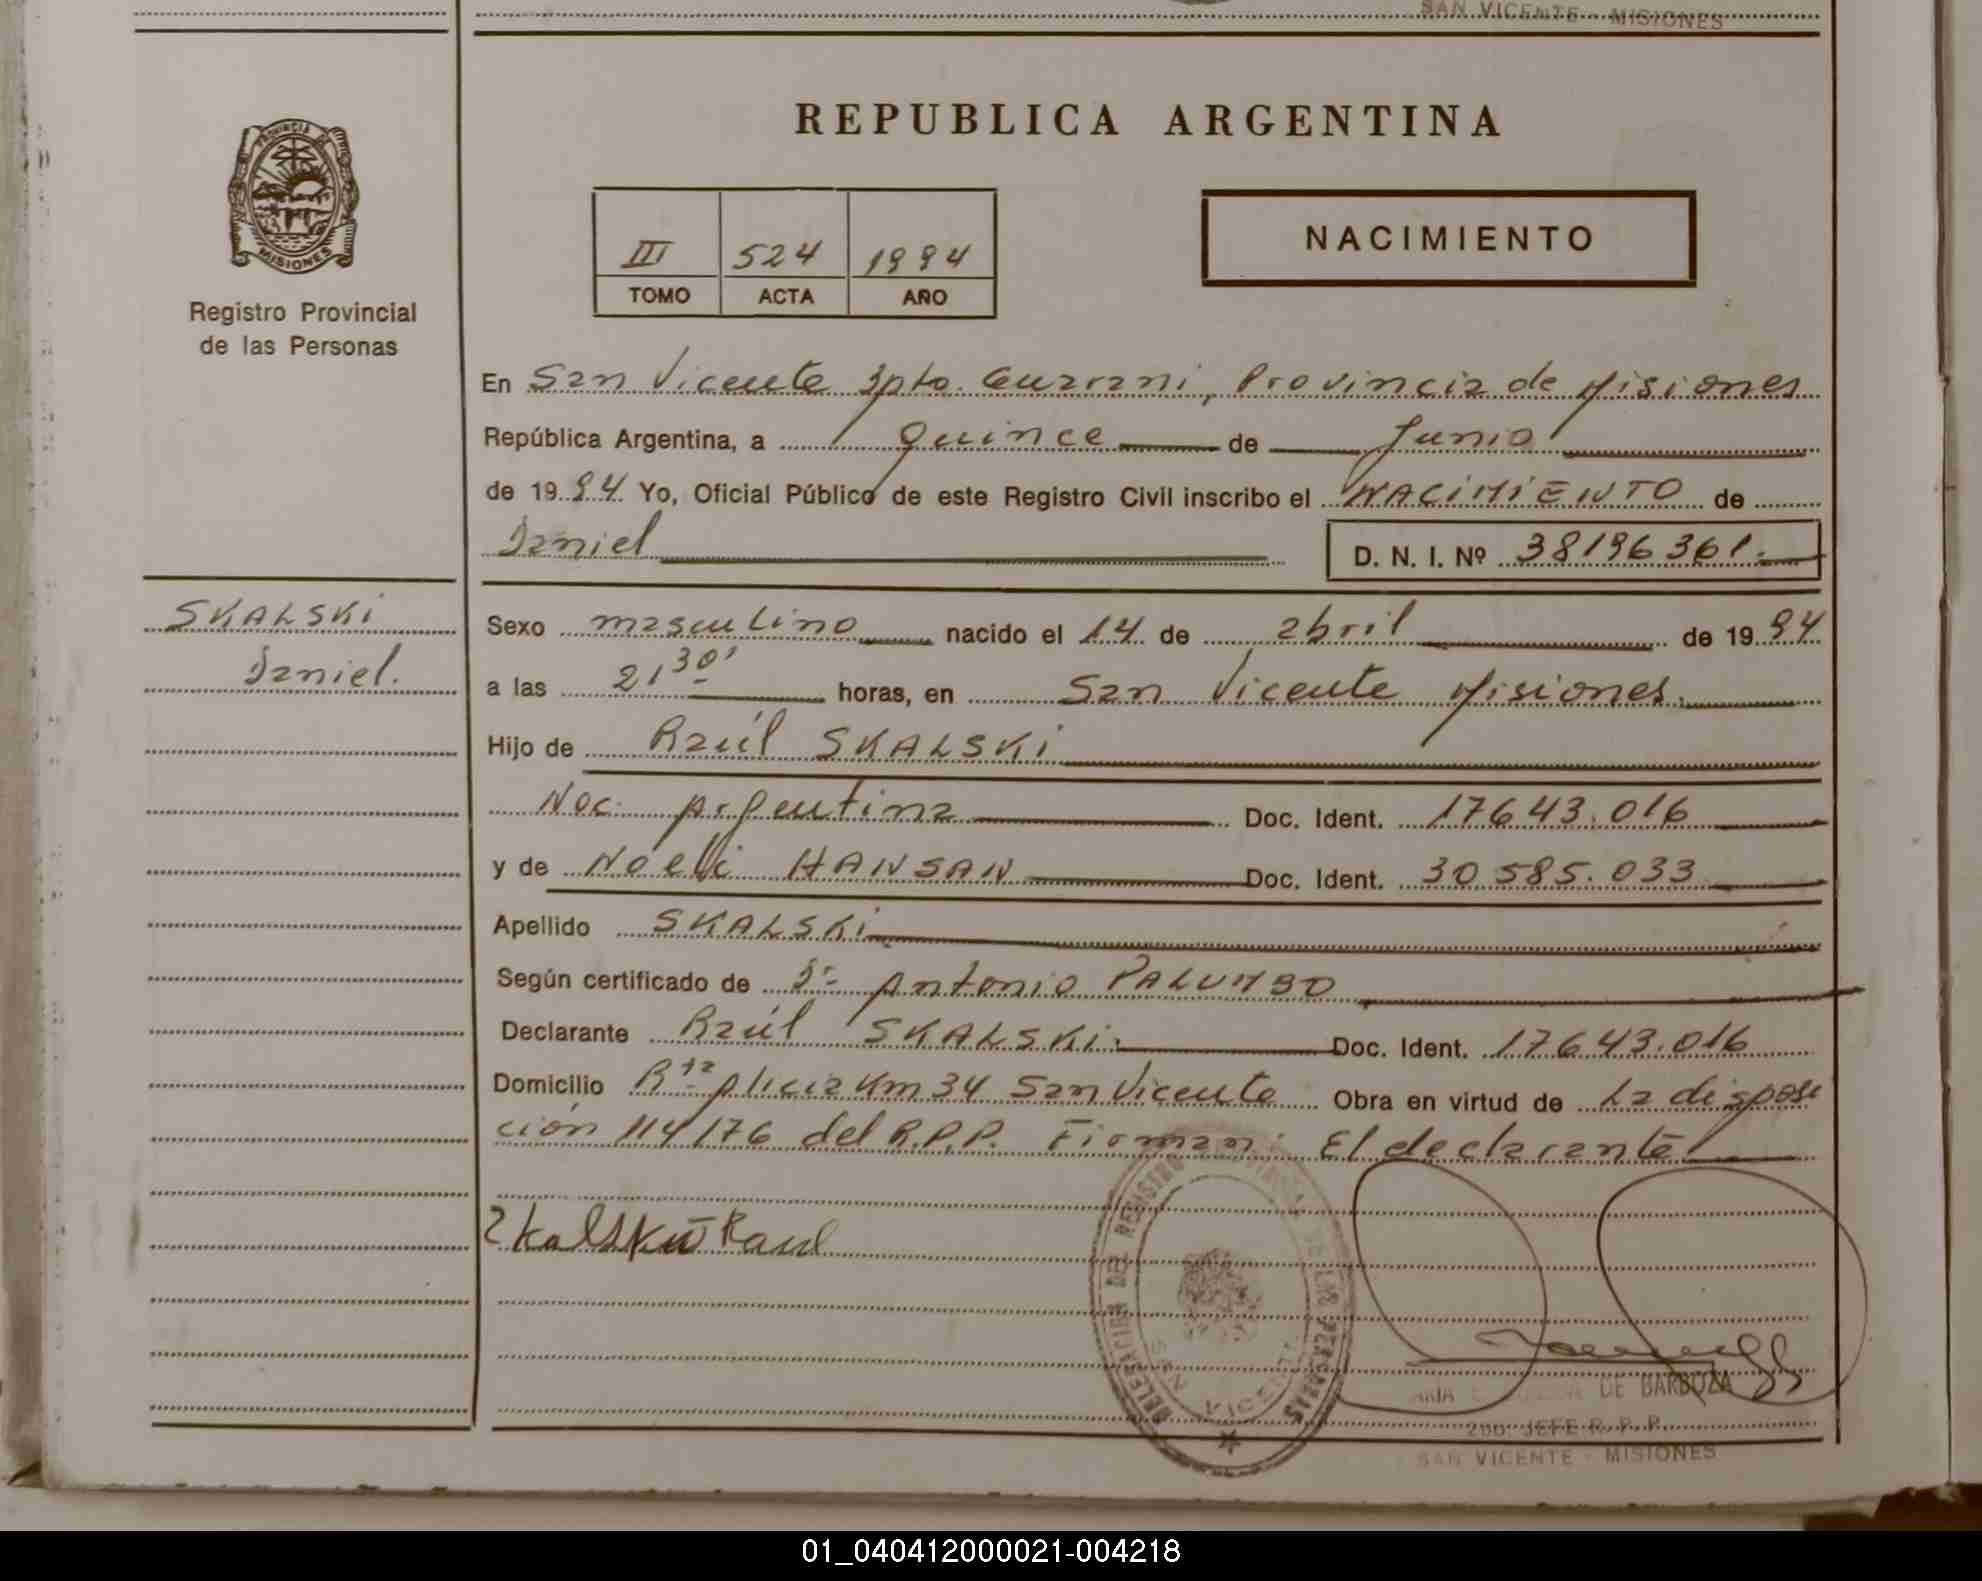 SAN VICENTE - MISIONES
REPUBLICA ARGENTINA
PROVINCIA DE
MISIONES
Registro Provincial
de las Personas
III 524 1994
TOMO ACTA AÑO
NACIMIENTO
En San Vicente Dpto. Guarani, Provincia de Misiones
República Argentina, a Quince de Junio
de 1994 Yo, Oficial Público de este Registro Civil inscribo el NACIMIENTO de
Daniel D. N. I. Nº 38196361.
SKALSKi
Daniel.
Sexo masculino nacido el 14 de abril de 1994
a las 21 30' horas, en San Vicente Misiones.
Hijo de Raúl SKALSKi
Nac. Argentina Doc. Ident. 17643.016
y de Noeli HANSAN Doc. Ident. 30585.033
Apellido SKALSKi
Según certificado de Dr Antonio PALUMBO
Declarante Raúl SKALSKi. Doc. Ident. 17643.016
Domicilio Rta Alicia Km 34 San Vicente Obra en virtud de La disposi
ción 114/76 del R.P.P. Firman: El declarante
Skalski Raul
DELEGACION DEL REGISTRO PROVINCIAL DE LAS PERSONAS
SAN VICENTE
DE BARBOZA
2do. JEFE R. P. P.
SAN VICENTE - MISIONES
01_040412000021-004218